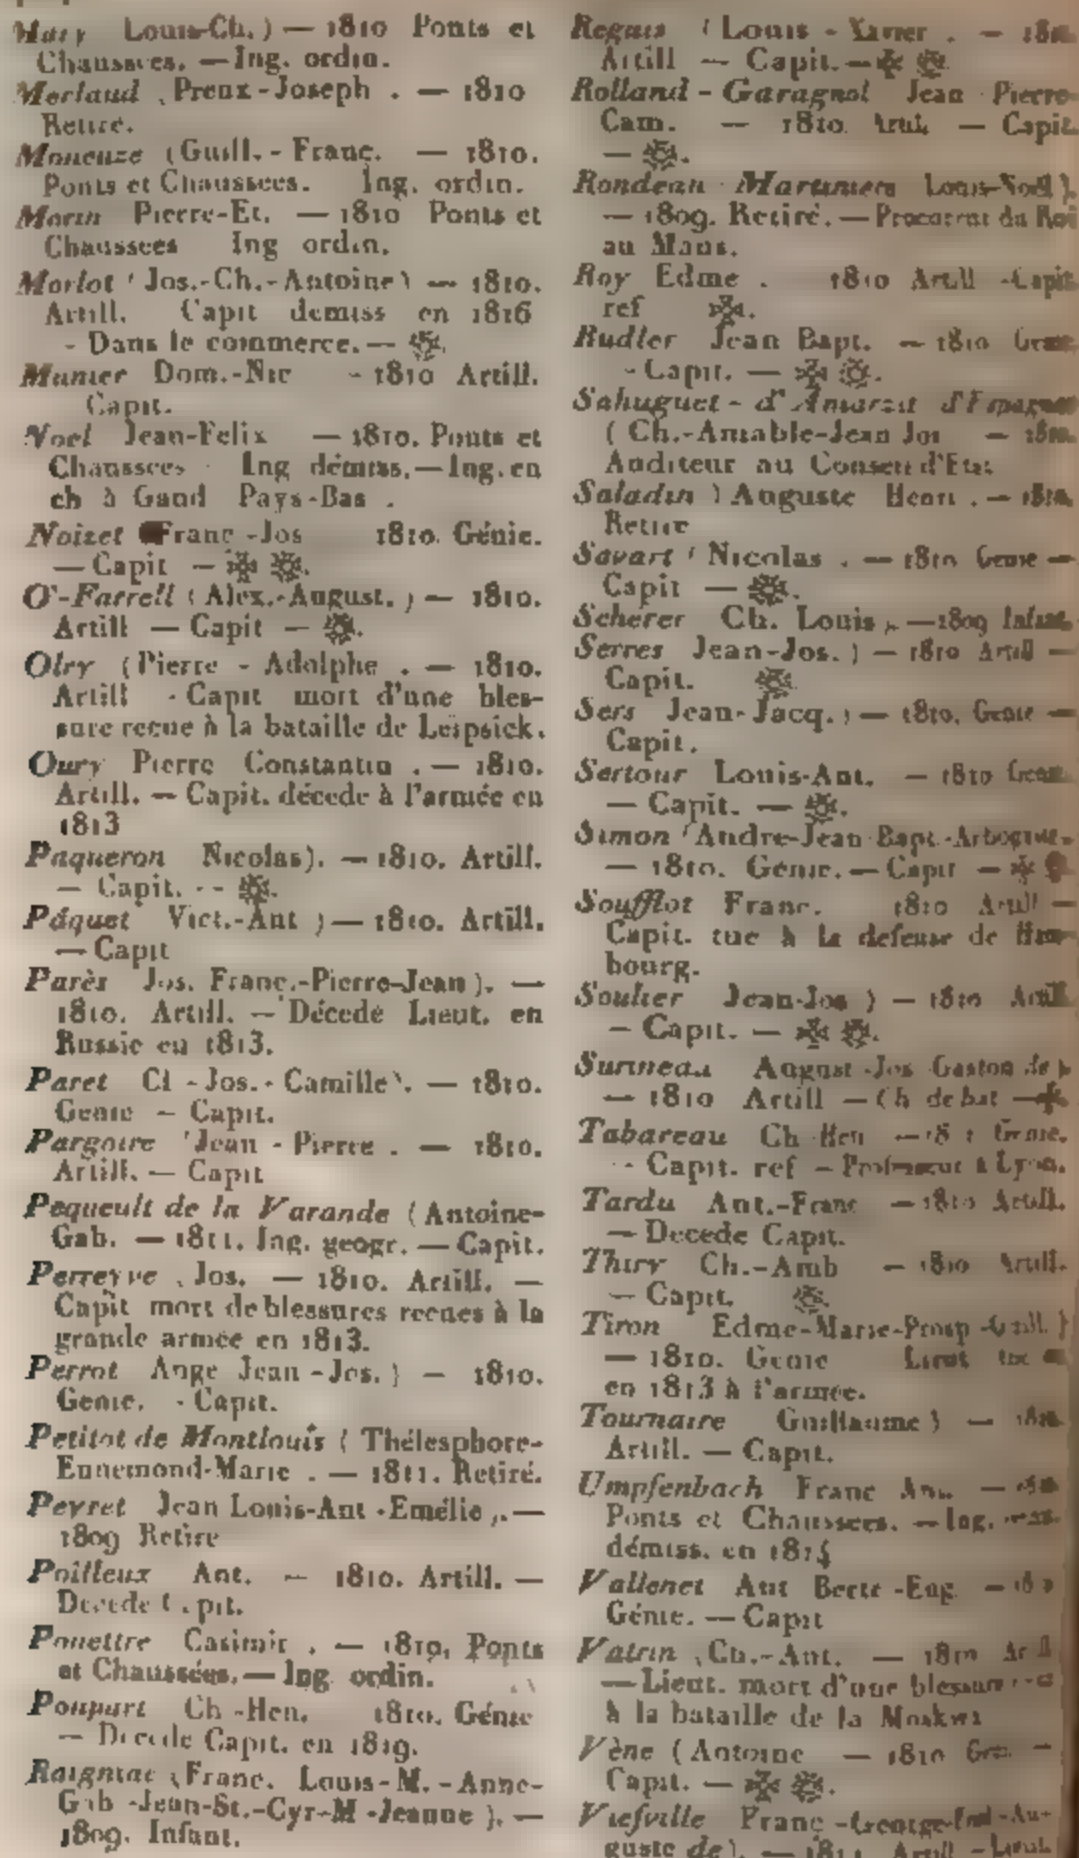 Mary Louis-Ch.) — 1810 Ponts et
Chaussees. — Ing. ordin.
Merlaud Preux-Joseph . — 1810
Retire.
Moneuze (Guill.- Franç. — 1810.
Ponts et Chaussees. Ing. ordin.
Morin Pierre-Et. — 1810 Ponts et
Chaussees Ing ordin.
Morlot (Jos.-Ch.-Antoine) — 1810.
Artill. Capit demiss en 1816
- Dans le commerce. —
Munier Dom.-Nic - 1810 Artill.
Capit.
Noel Jean-Felix — 1810. Ponts et
Chaussees Ing démiss. — Ing. en
ch à Gand Pays-Bas .
Noizet Franç -Jos 1810. Génie.
— Capit —
O'-Farrell (Alex.-August.) — 1810.
Artill — Capit —
Olry (Pierre - Adolphe . — 1810.
Artill - Capit mort d'une bles-
sure reçue à la bataille de Leipsick.
Oury Pierre Constantin . — 1810.
Artill. — Capit. décede à l'armée en
1813
Paqueron Nicolas). — 1810. Artill.
— Capit. --
Páquet Vict.-Ant ) — 1810. Artill.
— Capit
Parès Jos. Franç.-Pierre-Jean). —
1810. Artill. — Décedé Lieut. en
Russie en 1813.
Paret Cl - Jos. - Camille). — 1810.
Genie — Capit.
Pargoire (Jean - Pierre . — 1810.
Artill. — Capit
Pequeult de la Varande (Antoine-
Gab. — 1811. Ing. geogr. — Capit.
Perreyve Jos. — 1810. Artill. —
Capit mort de blessures recues à la
grande armée en 1813.
Perrot Ange Jean - Jos.) — 1810.
Genie. - Capit.
Petitot de Montlouis (Thélesphore-
Ennemond-Marie . — 1811. Retiré.
Peyret Jean Louis-Ant -Emélie . —
1809 Retire
Poilleux Ant. — 1810. Artill. —
Decede Capit.
Pouettre Casimir . — 1810. Ponts
et Chaussées. — Ing ordin.
Poupart Ch -Hen. 1810. Génie
— Decede Capit. en 1819.
Raigniac (Franc. Louis-M. - Anne-
Gab -Jean-St.-Cyr-M -Jeanne ). —
1809. Infant.
Regnis (Louis - Xavier . —
Artill — Capit. —
Rolland - Garagnol Jean Pierre-
Cam. — 1810. Artill. — Capit.
—
Rondeau Martiniere Louis-Noël).
— 1809. Retiré. — Procureur du Roi
au Mans.
Roy Edme . 1810 Artill - Capit.
ref
Rudler Jean Bapt. — 1810 Genie
- Capit. —
Sahuguet - d'Amarzit d'Espagnac
(Ch.-Amable-Jean Jos —
Auditeur au Conseil d'Etat
Saladin ) Auguste Henri . —
Retire
Savart (Nicolas . — 1810 Genie —
Capit —
Scherer Ch. Louis . — 1809 Infant.
Serres Jean-Jos.) — 1810 Artill —
Capit.
Sers Jean-Jacq.) — 1810. Genie —
Capit.
Sertour Louis-Ant. — 1810 Genie
— Capit. —
Simon (Andre-Jean Bapt.-
— 1810. Genie. — Capit —
Soufflot Franc. 1810 Artill —
Capit. tue à la defense de Ham-
bourg.
Soulier Jean-Jos ) — 1810 Artill
— Capit. —
Surineau August -Jos Gaston de
— 1810 Artill — Ch de bat —
Tabareau Ch Hen — Genie.
-- Capit. ref — Professeur à Lyon.
Tardu Ant.-Franc — 1810 Artill.
— Decede Capit.
Thiry Ch.-Amb — 1810 Artill.
— Capit.
Tiron Edme-Marie-Prosp -Guill.)
— 1810. Genie Lieut tue
en 1813 à l'armée.
Tournaire Guillaume) —
Artill. — Capit.
Umpfenbach Franc —
Ponts et Chaussees. — Ing.
démiss. en
Vallenet Ant Berte -Eug —
Génie. — Capit
Vatrin (Ch.-Ant. — 1810 Artill
— Lieut. mort d'une blessure
à la bataille de la Moskwa
Vène (Antoine — 1810 Gen. —
Capit. —
Viefville Franç -George- -Au-
guste de). — Artill - Lieut.